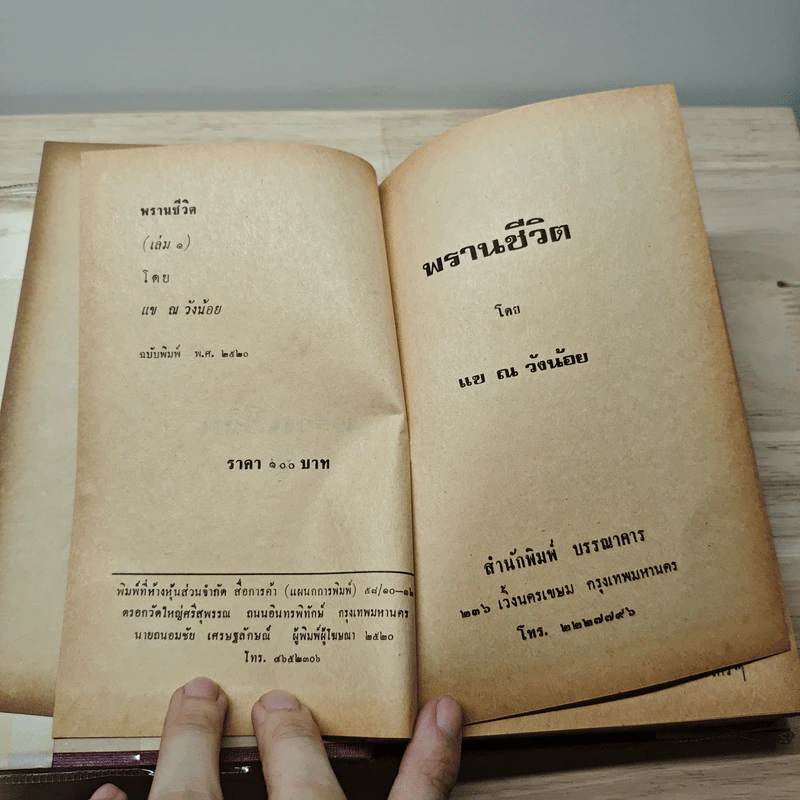 พรานชีวิต
(เล่ม ๑)
โดย
แข ณ วังน้อย
ฉบับพิมพ์ พ.ศ. ๒๕๒๐
ราคา ๑๐๐ บาท
พิมพ์ที่ห้างหุ้นส่วนจำกัด สื่อการค้า (แผนกการพิมพ์) ๕๘/๑๐–๑๒
ตรอกวัดใหญ่ศรีสุพรรณ ถนนอินทรพิทักษ์ กรุงเทพมหานคร
นายถนอมชัย เศรษฐลักษณ์ ผู้พิมพ์ผู้โฆษณา ๒๕๒๐
โทร. ๔๖๕๒๓๐๖
พรานชีวิต
โดย
แข ณ วังน้อย
สำนักพิมพ์ บรรณาคาร
๒๓๖ เวิ้งนครเขษม กรุงเทพมหานคร
โทร. ๒๒๒๗๗๙๖